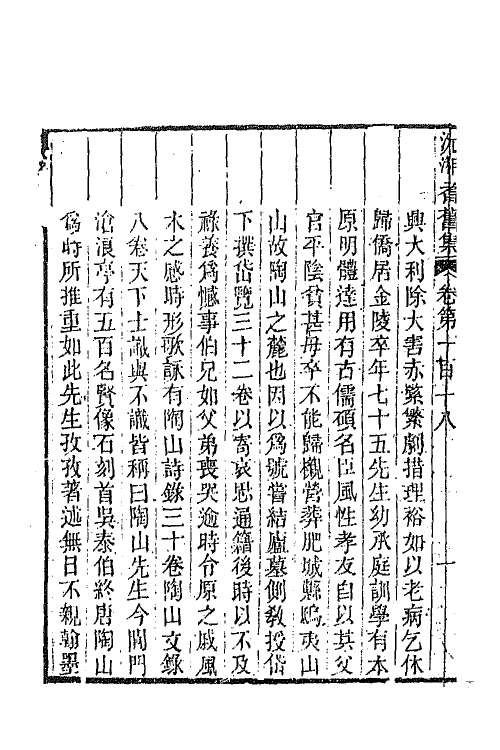 沅湘耆舊集 卷第一百十八 一
興大利除大害赤緊繁劇措理裕如以老病乞休
歸僑居金陵卒年七十五先生幼承庭訓學有本
原明體達用有古儒碩名臣風性孝友自以其父
官平陰貧甚毋卒不能歸櫬營葬肥城縣鴟夷山
山故陶山之麓也因以爲號嘗結廬墓側敎授岱
下撰岱覽三十二卷以寄哀思通籍後時以不及
祿養爲憾事伯兄如父弟喪哭逾時台原之戚風
木之感時形歌詠有陶山詩錄三十卷陶山文錄
八卷天下士識與不識皆稱曰陶山先生今閶門
滄浪亭有五百名賢像石刻首吳泰伯終唐陶山
爲時所推重如此先生孜孜著述無日不親翰墨